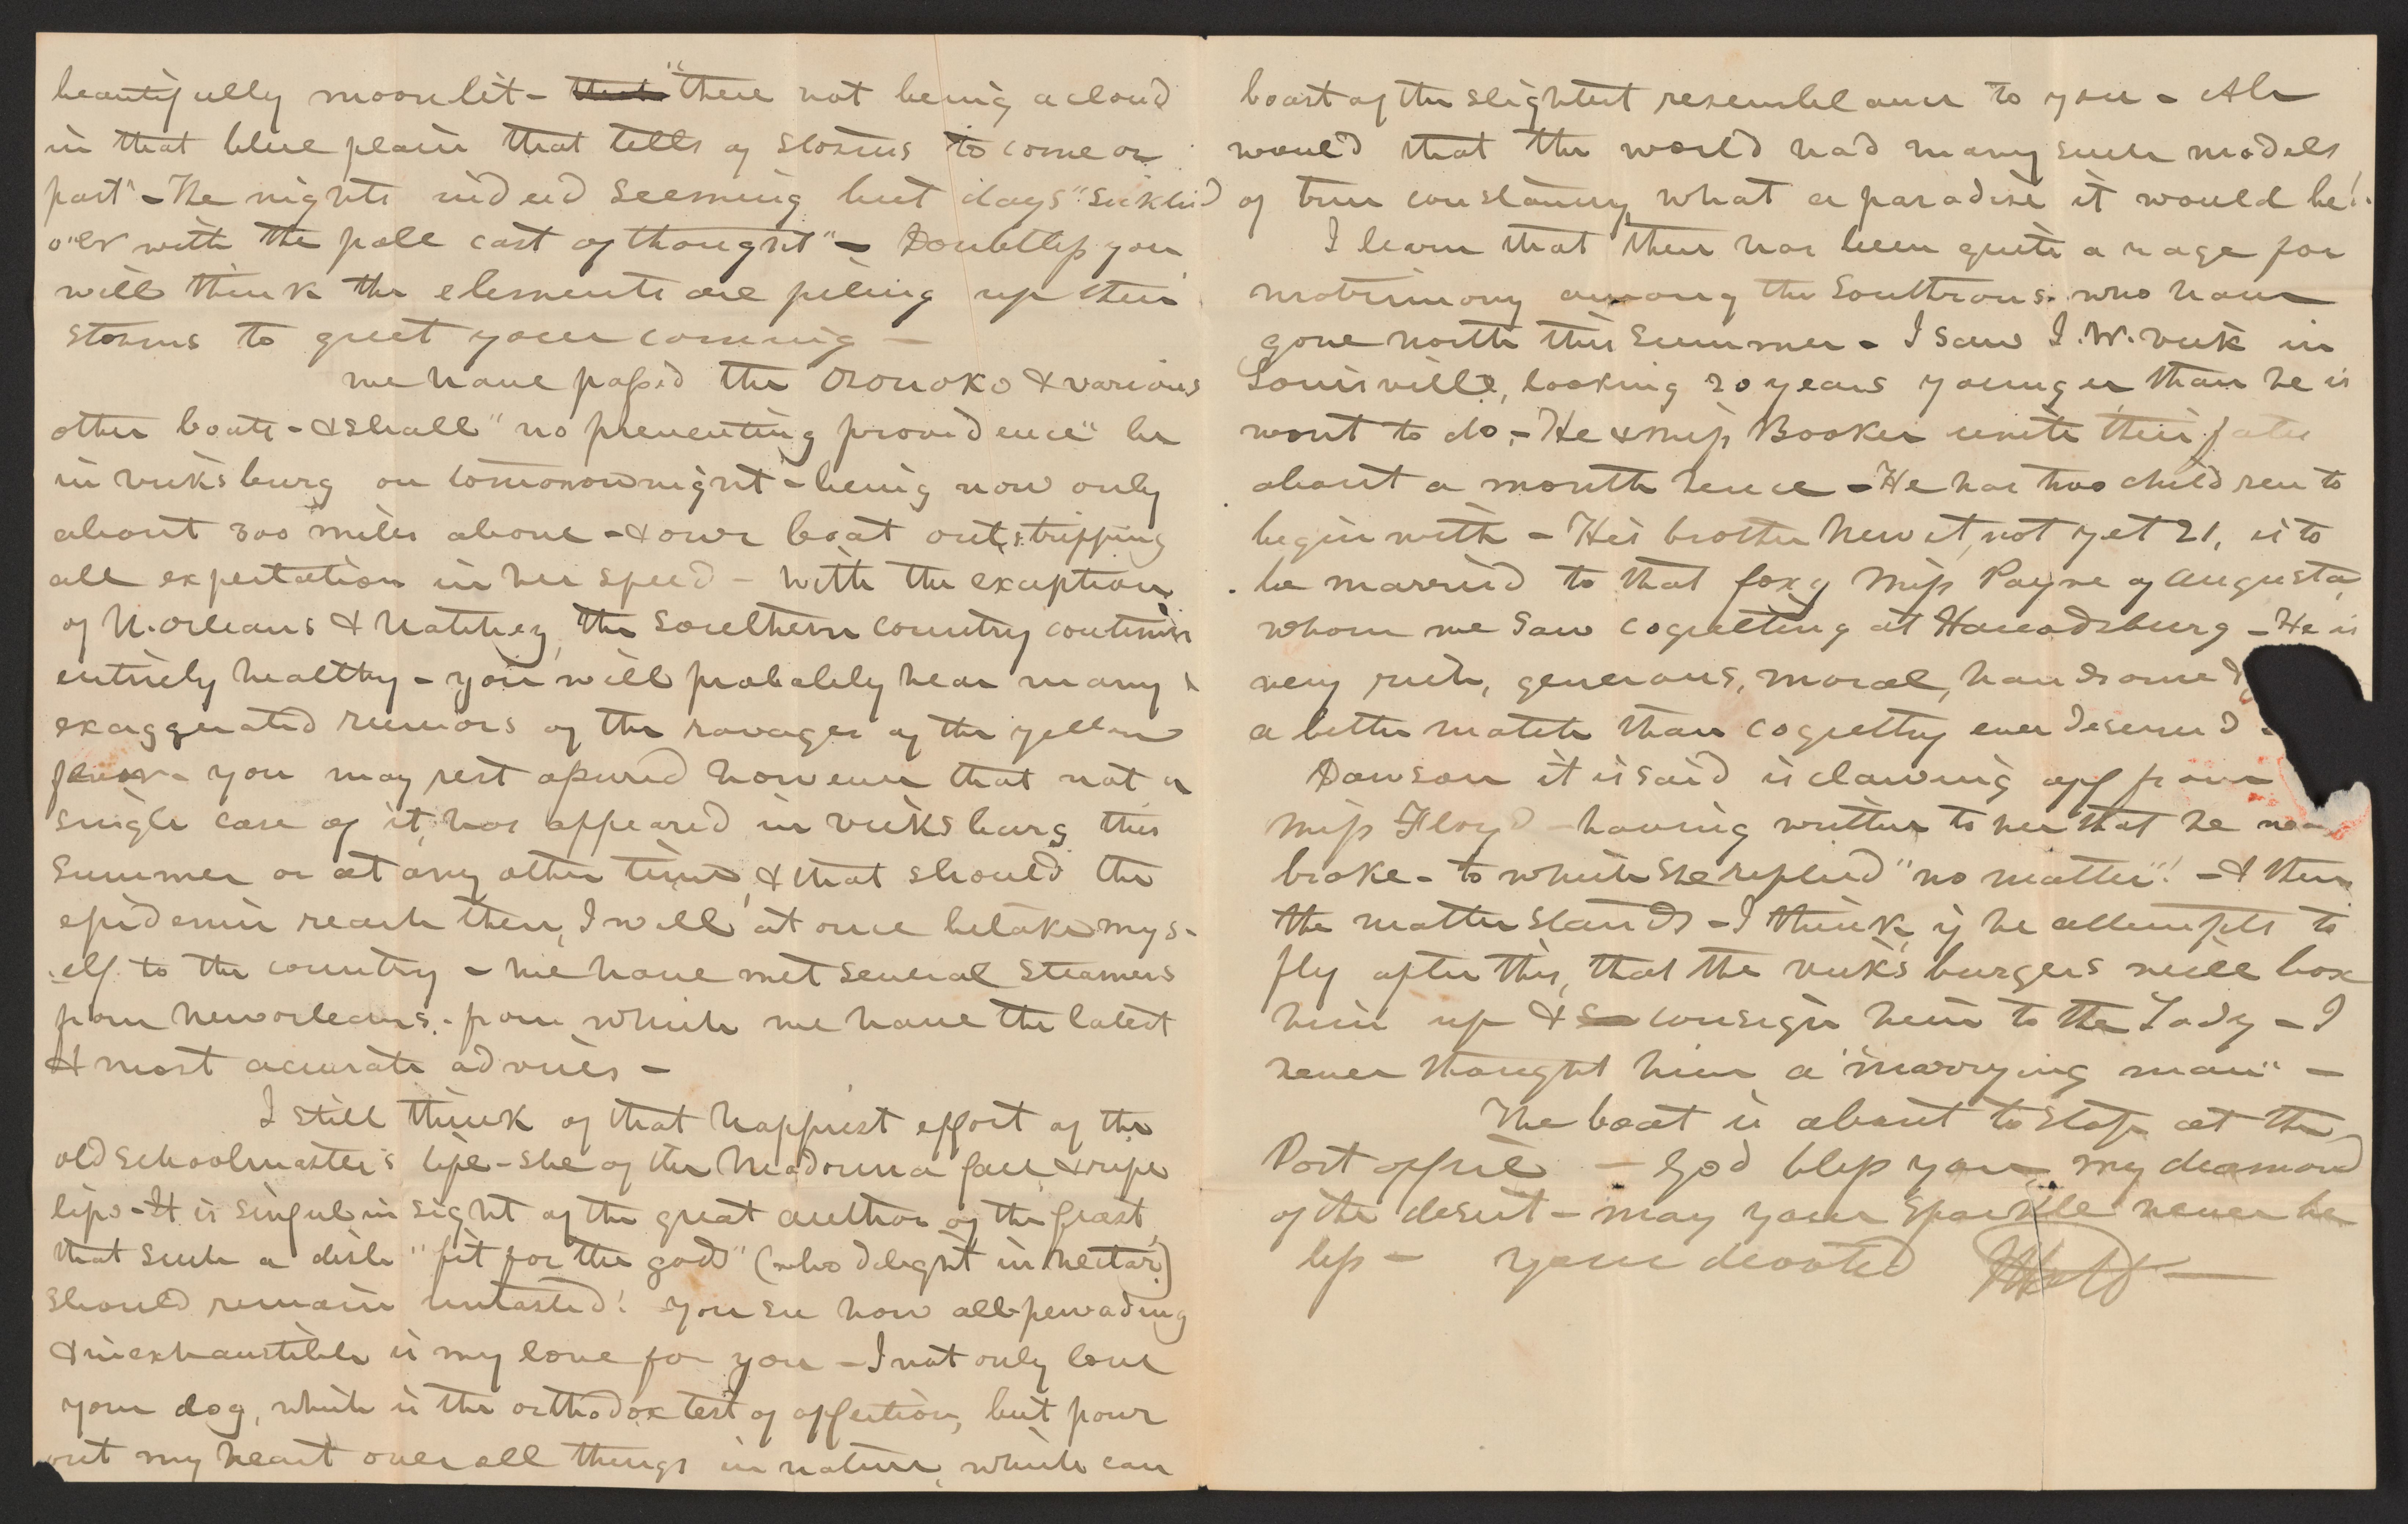 beautifully moonlit - that "there not being a cloud
in that blue plain that tells of storms to come or
past" - The nights indeed seeming but days "sicklied
o'er with the pale cast of thought" - Doubtless you
will think the elements are piling up their
storms to greet your coming -
we have passed the Oronoko & various
other boats - & shall "no preventing providence" be
in vicksburg on tomorrow night - being now only
about 300 miles above - & our boat outstripping
all expectation in her speed - With the exception
of N. Orleans & Natchez, the Southern country continues
entirely healthy - you will probably hear many
exaggerated rumors of the ravages of the yellow
fever - you may rest assured however that not a
single case of it, has appeared in vicksburg this
summer or at any other time, & that should the
epidemic reach there, I will at once betake mys-
elf to the country - we have met several steamers
from new orleans - from which we have the latest
& most accurate advices -
I still think of that happiest effort of the
old schoolmaster's life - she of the Madonna face & ripe
lips - It is sinful in sight of the great author of the feast
that such a dish "fit for the gods" (who delight in nectar)
should remain untasted! you see how all-pervading
& inexhaustible is my love for you - I not only love
your dog, which is the orthodox test of affection, but pour
out my heart over all things in nature, which can
boast of the slightest resemblance to you - Ah
would that the world had many such models
of true constancy, what a paradise it would be!
I learn that there has been quite a rage for
matrimony among the Southrons who have
gone north this summer - I saw I. W. vick in
Louisville, looking 20 years younger than he is
wont to do, - He & miss Booker unite their fates
about a month hence - He has two children to
begin with - His brother Newit, not yet 21, is to
be married to that foxy Miss Payne of Augusta,
whom we saw coquetting at Harrodsburg - He is
very rich, generous, moral, handsome &
a better match than coquetry ever deserved -
Dawson it is said is clawing off from
Miss Floyd - having written to her that he was
broke - to which she replied "no matter"! - & there
the matter stands - I think if he attempts to
fly after this, that the vicksburgers will box
him up & consign him to the Lady - I
never thought him a "marrying man" -
The boat is about to stop at the
Post office - God bless you my diamond
of the desert - may your sparkle never be
less - your devoted JHolt